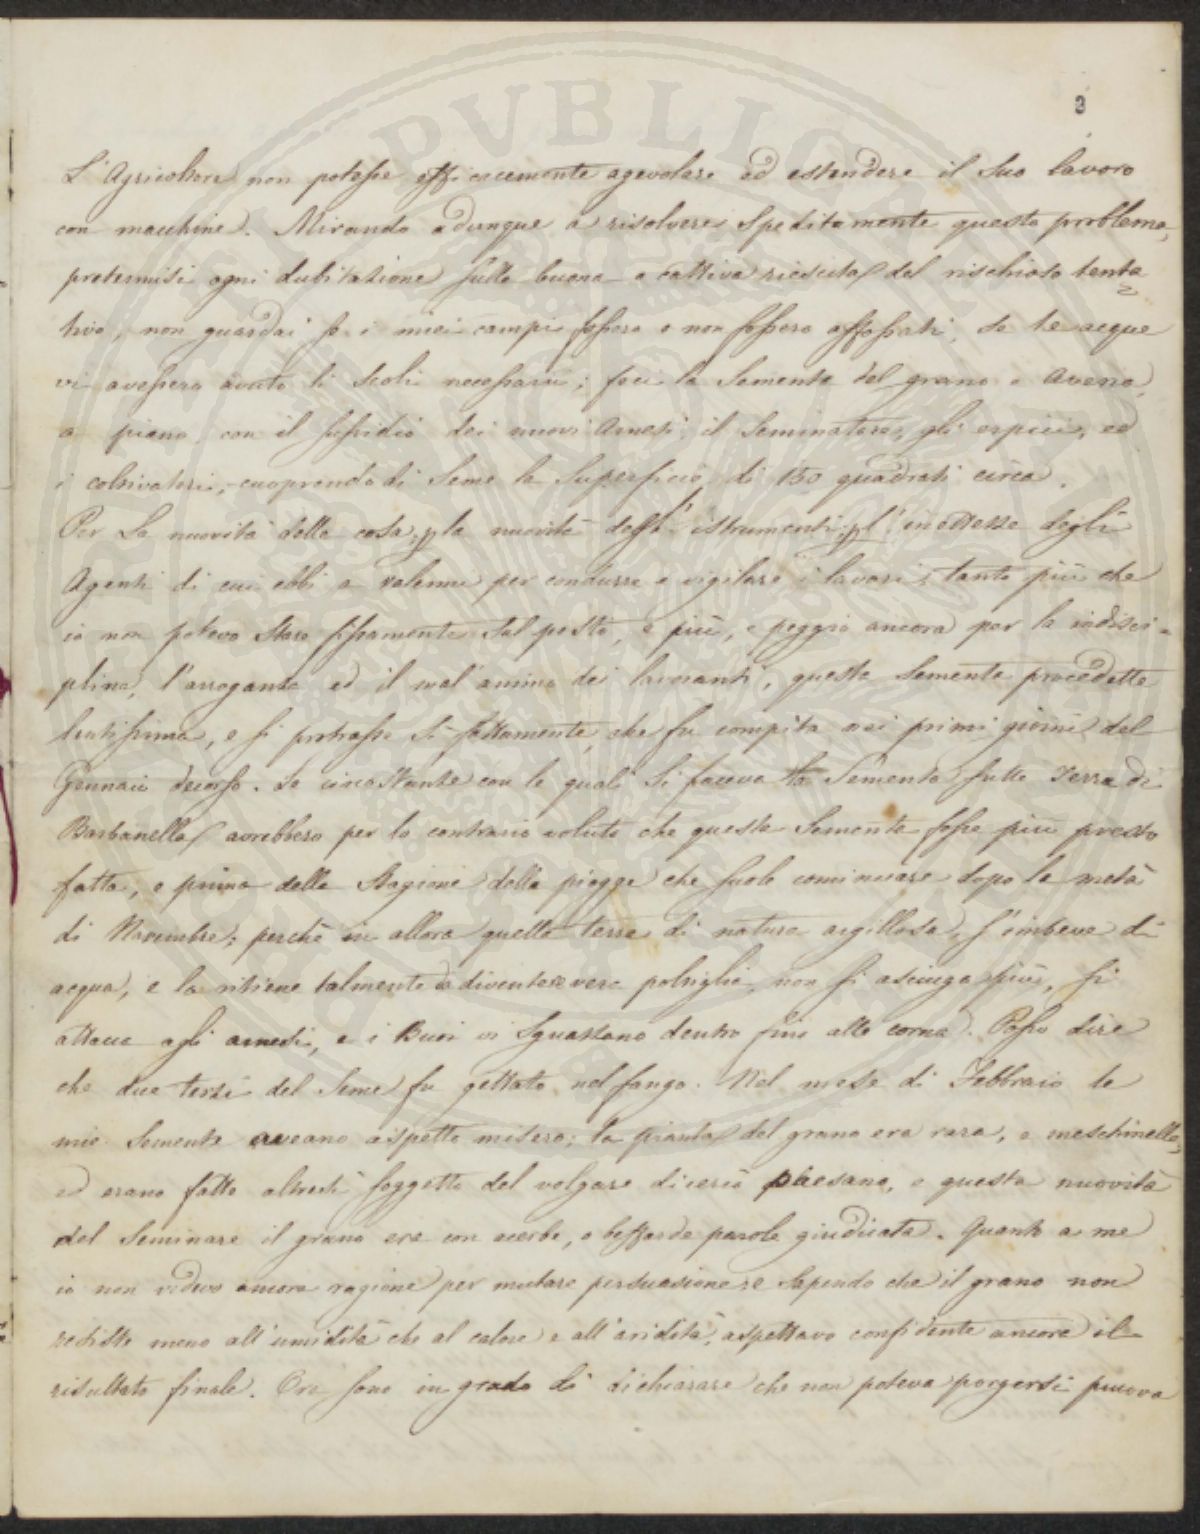 3
L'Agricoltore non potesse efficacemente agevolare ed estendere il suo lavoro
con macchine. Mirando adunque a risolvere speditamente questo problema,
pretermisi ogni dubitazione sulla buona o cattiva riescita del rischioso tenta
tivo, non guardai se i miei campi fossero o non fossero affossati, se le acque
vi avessero avuto li scoli necessarii; feci la sementa del grano e avena,
a piano, con il sussidio dei nuovi arnesi, il seminatore, gli erpici, ed
i coltivatori, cuoprendo di seme la superficie di 150 quadrati circa.
Per la nuovità della cosa, p la nuovità degl' istrumenti; p l'inettezze degli
Agenti di cui ebbi a valermi per condurre e vigilare i lavori; tanto più che
io non potevo stare fissamente sul posto, e più, e peggio ancora per la indisci-
plina, l'arroganza ed il mal'animo dei lavoranti, questa sementa procedette
lentissima, e si protrasse sì fattamente, che fu compita nei primi giorni del
Gennaio decorso. Le circostanze con le quali si faceva la sementa sulle Terra di
Barbanella avrebbero per lo contrario voluto che questa sementa fosse più presto
fatta, e prima della stagione delle piogge che suole cominciare dopo la metà
di Novembre; perchè in allora quella terra di natura argillosa, s'imbeve di
acqua, e la ritiene talmente da diventare vera poltiglia, non si asciuga più, si
attacca agli arnesi, e i Buoi vi sguazzano dentro fino alle corna. Posso dire
che due terzi del seme fu gettato nel fango. Nel mese di Febbraio le
mie semente aveano aspetto misero; la pianta del grano era rara, e meschinella,
ed erano fatto altresì soggetto del volgare diceria paesano, e questa nuovità
del seminare il grano era con acerbe, e beffarde parole giudicata. Quanto a me
io non vedevo ancora ragione per mutare persuasione e sapendo che il grano non
resiste meno all'umidità che al calore e all'aridità, aspettavo confidente ancora il
risultato finale. Ora sono in grado di dichiarare che non poteva porgersi pruova